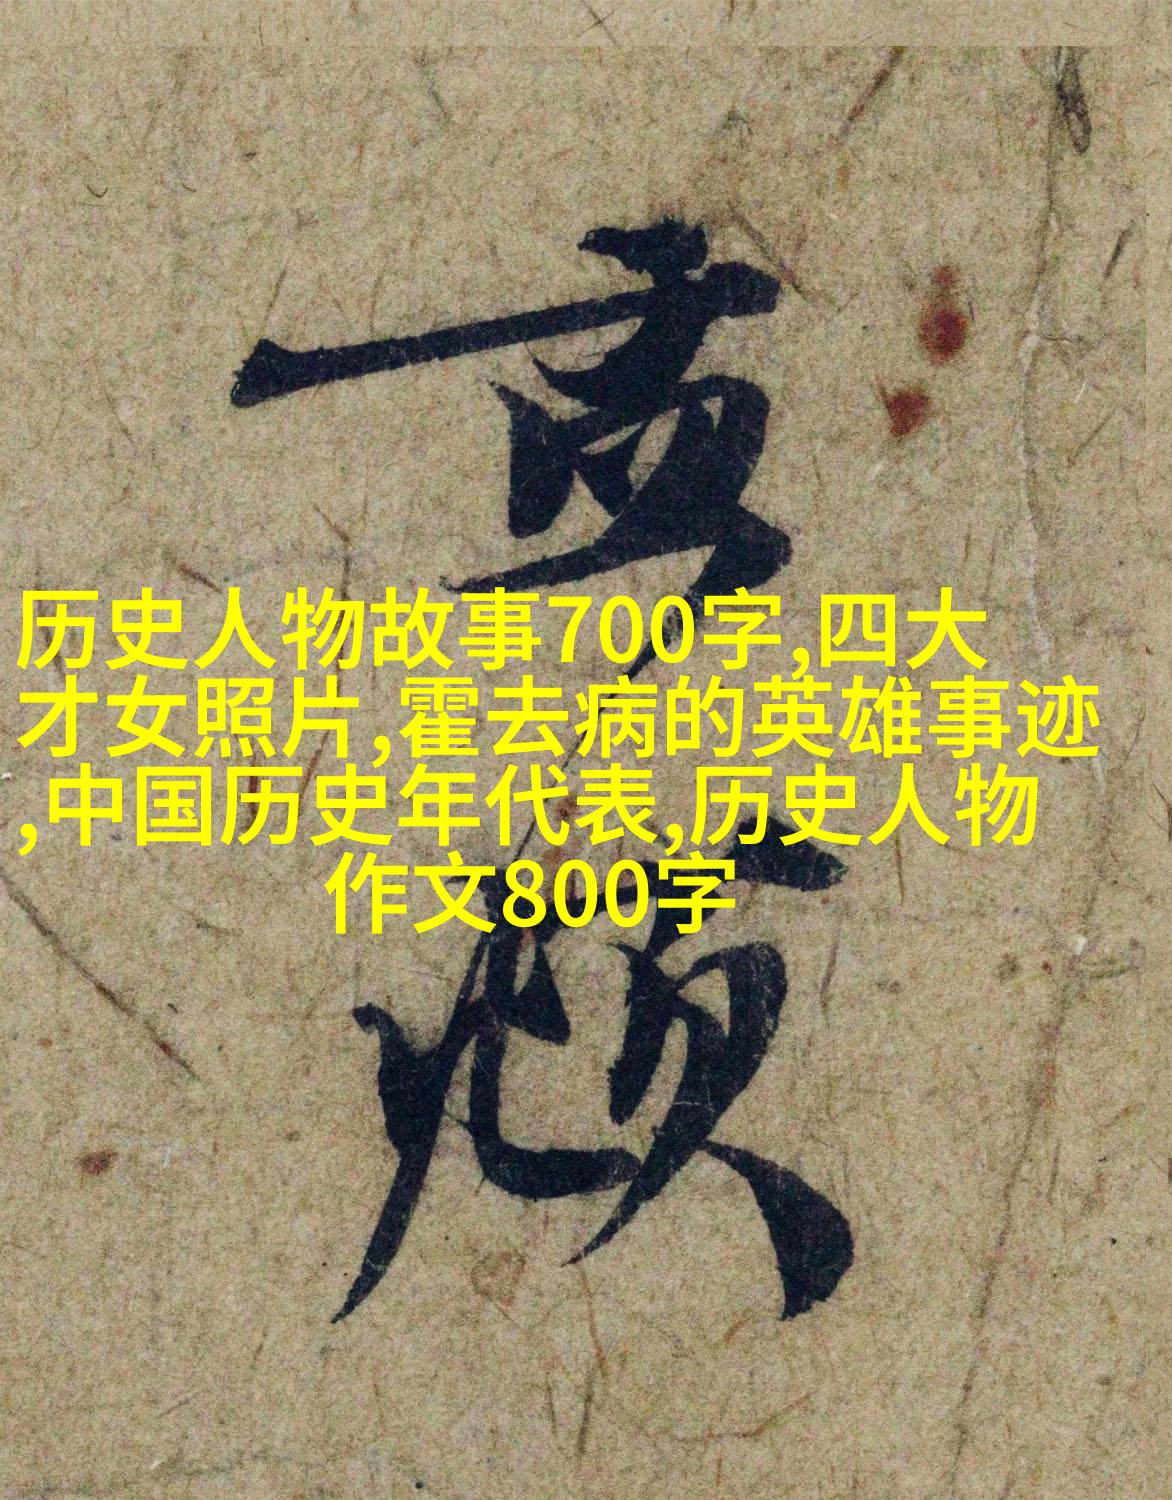 历史人物故事700字,四大
才女照片,霍去病的英雄事迹
,中国历史年代表,历史人物
作文800字